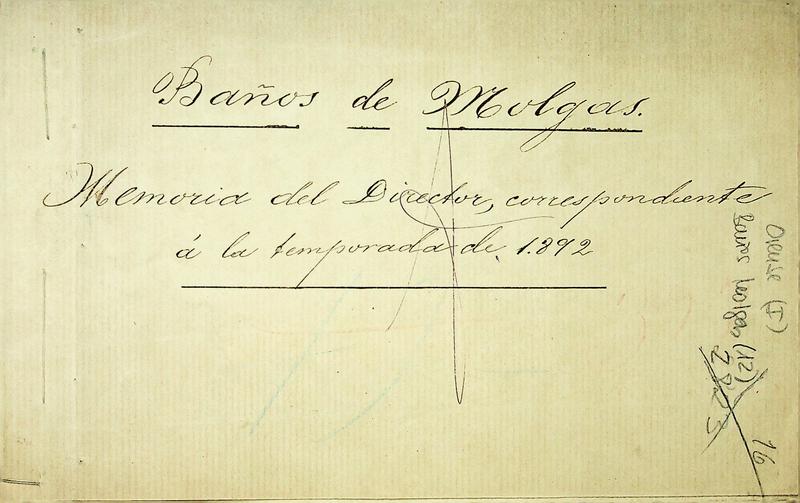 Baños de Molgas.
Memoria del Director, correspondiente
á la temporada de 1.892
Orense (I)
Baños Molgas (12)
16